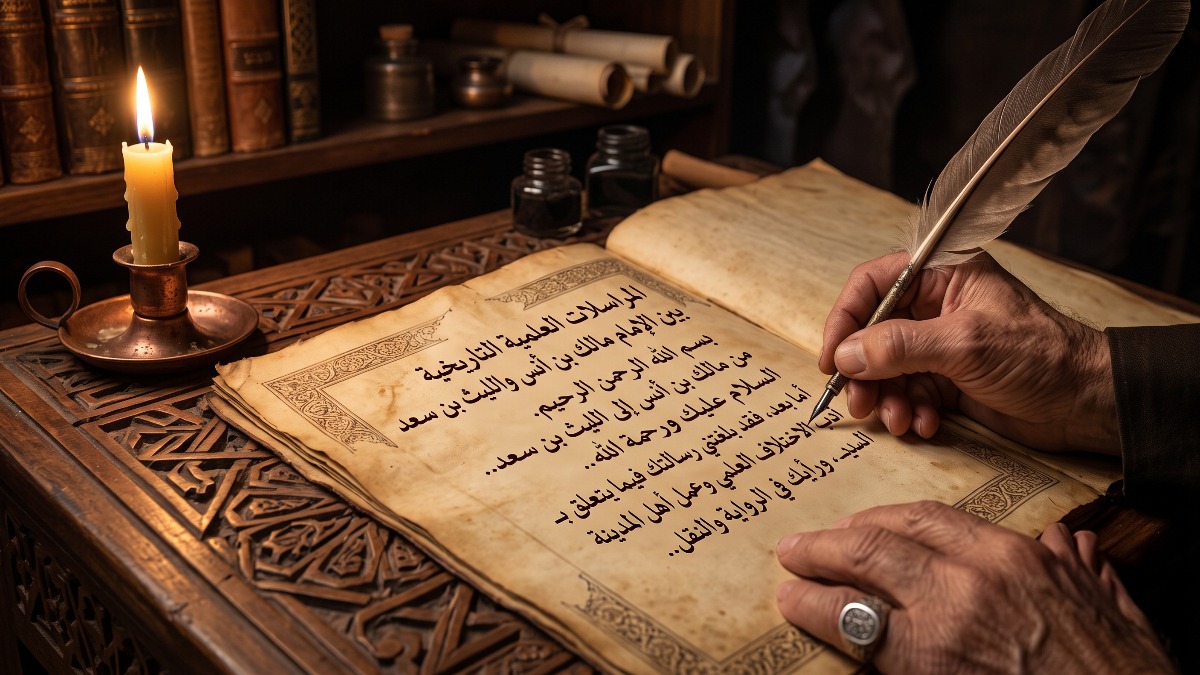 المراسلات العلمية التاريخية
بين الإمام مالك بن أنس والليث بن سعد
بسم الله الرحمن الرحيم.
من مالك بن أنس إلى الليث بن سعد..
السلام عليك ورحمة الله..
أما بعد، فقد بلغتني رسالتك فيما يتعلق بـ
الاختلاف العلمي وعمل أهل المدينة
ورأيك في الرواية والنقل..